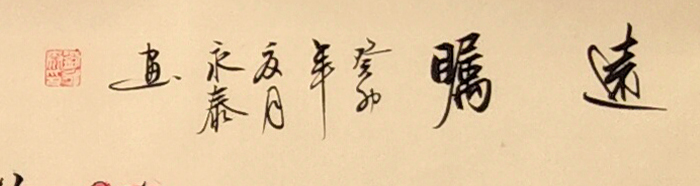 遠瞩
癸卯
年
夏月
永泰
画